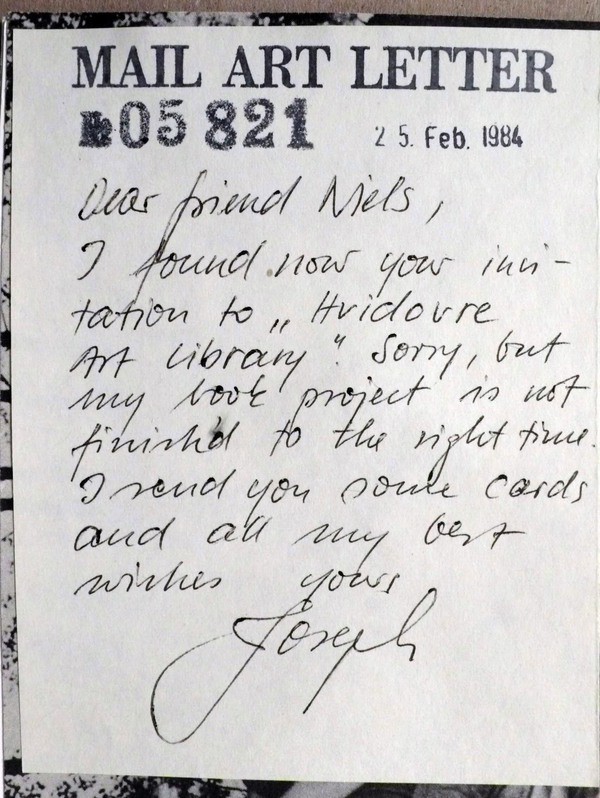 MAIL ART LETTER
№05821
25. Feb. 1984
Dear friend Niels,
I found now your invi-
tation to „Hvidovre
Art Library". Sorry, but
my book project is not
finish'd to the right time.
I send you some cards
and all my best
wishes yours
Joseph